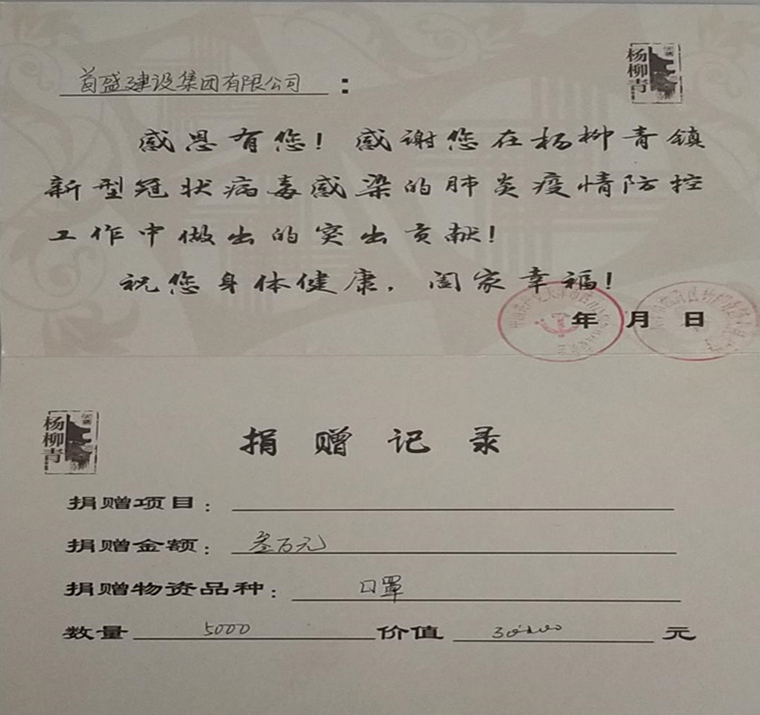 首盛建设集团有限公司：
杨柳青
感恩有您！感谢您在杨柳青镇
新型冠状病毒感染的肺炎疫情防控
工作中做出的突出贡献！
祝您身体健康，阖家幸福！
年 月 日
杨柳青
捐赠记录
捐赠项目：
捐赠金额：叁万元
捐赠物资品种：口罩
数量 5000 价值 30000 元